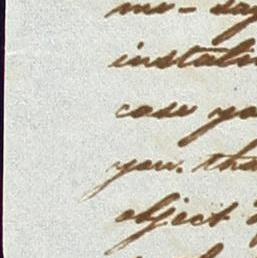 me - say
instalm
case yo
you. tha
object